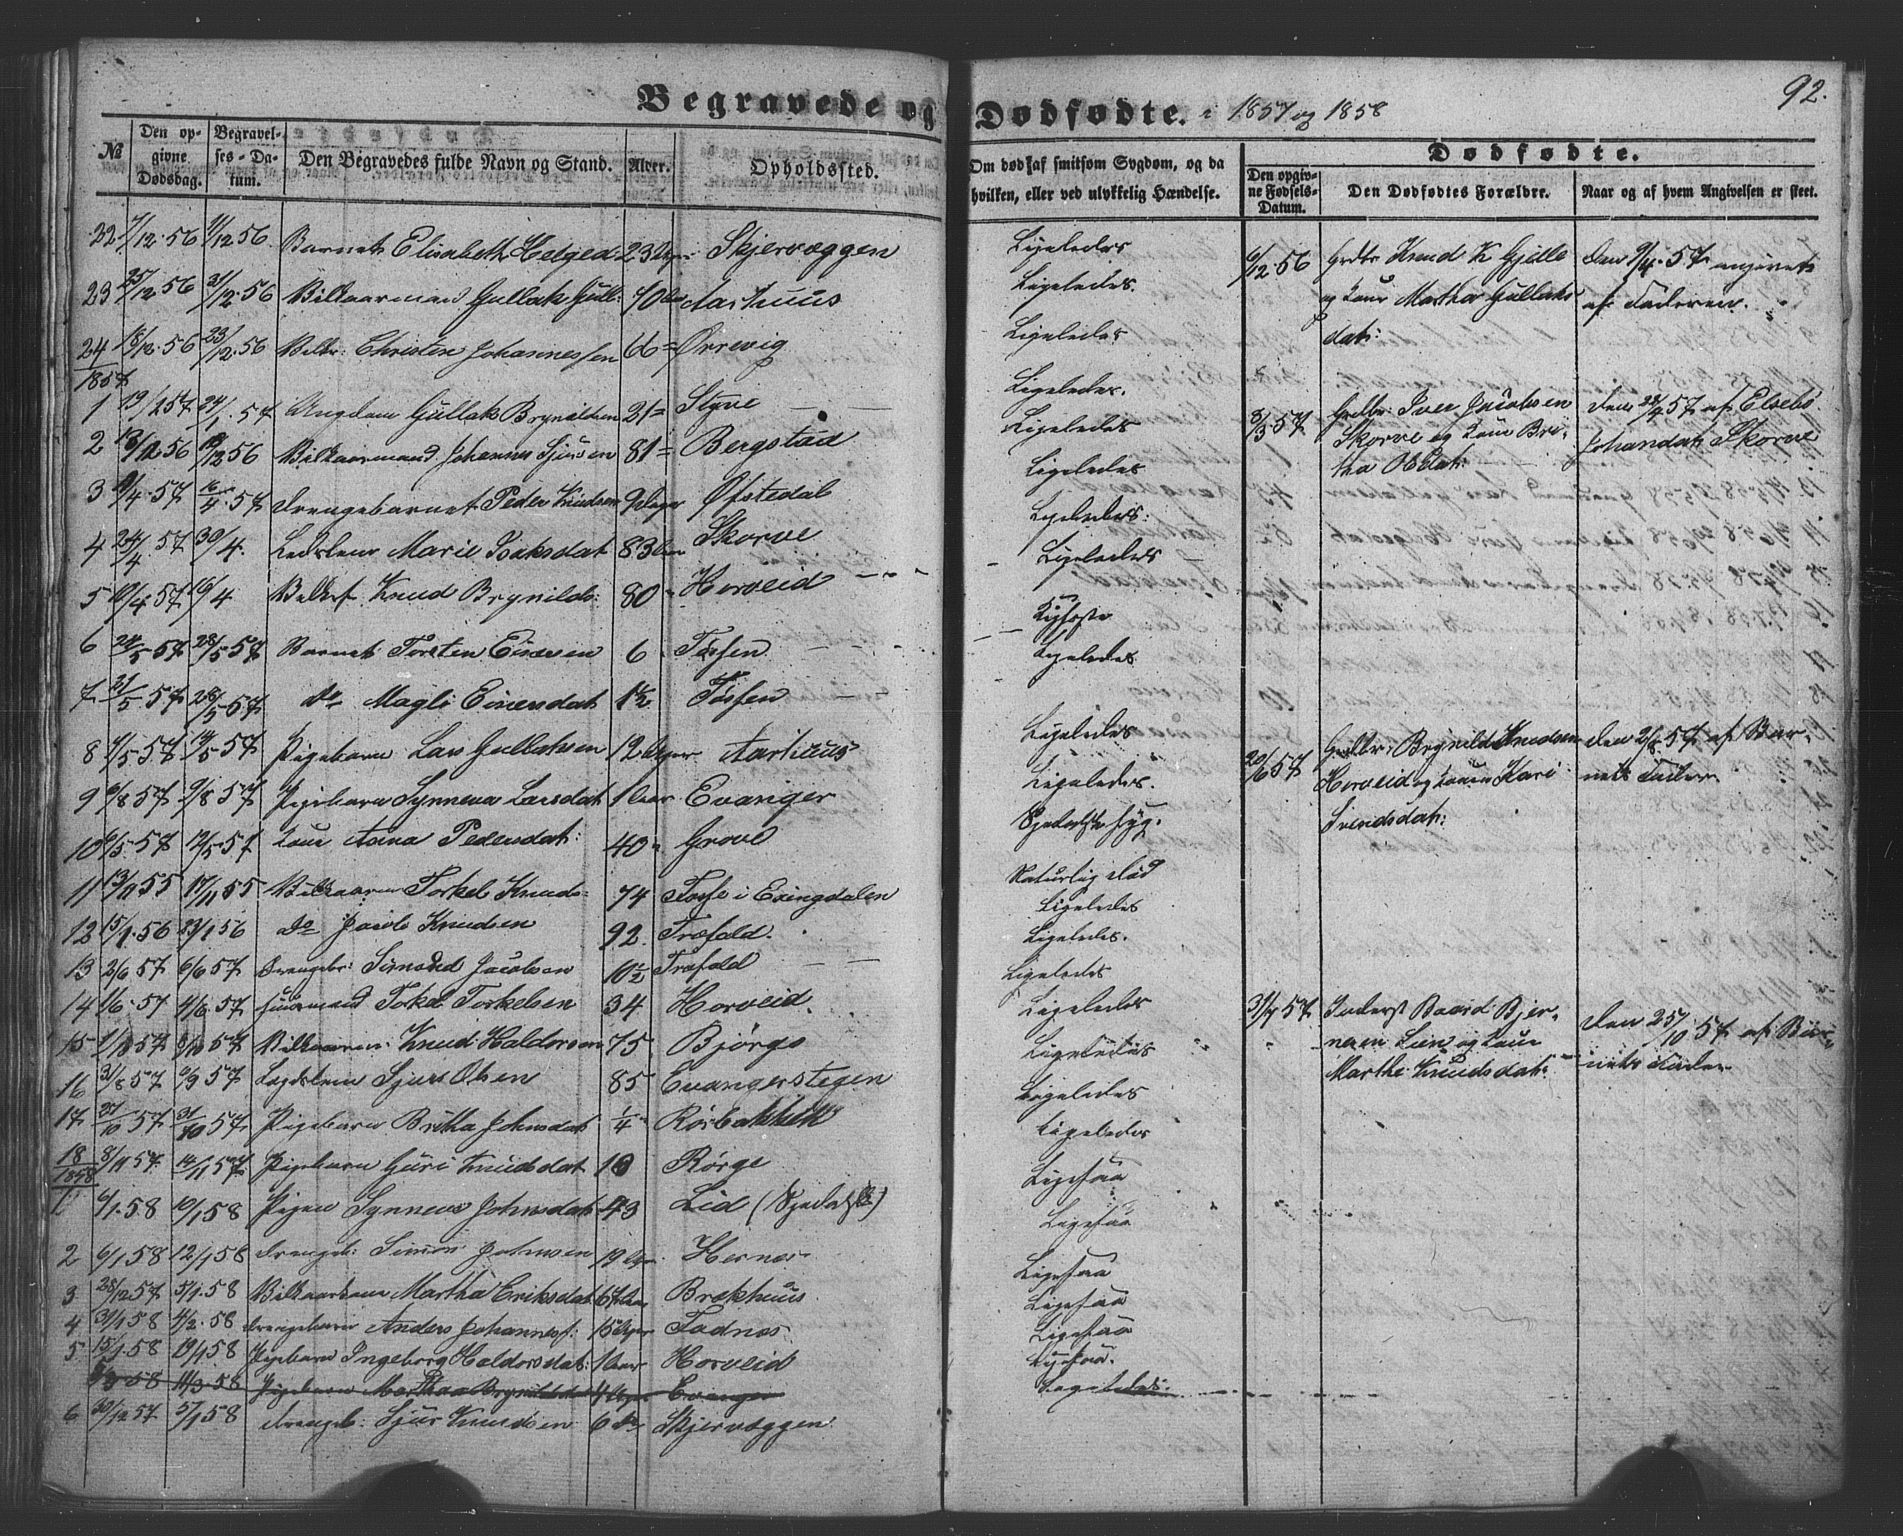 92.
Begravede og Dødfødte. i 1857 og 1858
№
Den opgivne Dødsdag.
Begravelses-Datum.
Den Begravedes fulde Navn og Stand.
Alder.
Opholdssted.
Om død af smitsom Sygdom, og da hvilken, eller ved ulykkelig Hændelse.
Dødfødte.
Den opgivne Fødsels-Datum.
Den Dødfødtes Forældre.
Naar og af hvem Angivelsen er skeet.
22 7/12 56 11/12 56 Barnet Elisabeth Helged 23 Uger Skjervæggen Ligeledes
23 25/12 56 31/12 56 Vilkaarmand Gullak Gull: 70 Aar Aarhuus Ligeledes.
24 18/12 56 23/12 56 Vilkr: Christen Johannessen 66 Ørrevig Ligeledes
1857
1 24/1 57 Ungdom Gullak Brynildsen 21 Styve Ligeledes.
2 56 12 56 Vilkaarmand Johannes Sjursen 81 Bergstad Ligeledes
3 9/4 57 16/4 57 Drengebarnet Peder Knudsen 9 Dager Øfstedal Ligeledes
4 24/4 57 30/4 Marie Isaksdat 83 Aar Skorve Ligeledes.
5 10/4 57 16/4 Knud Brynilds: 80 Horveid Ligeledes
6 24/5 57 28/5 57 Barnet Torsten Einersen 6 Tøssen
7 21/5 57 28/5 57 do Magli Einersdat 1½ Tøssen Ligeledes
8 7/5 57 14/5 57 Pigebarn Lars Gullaksen 12 Uger Aarhuus Ligeledes
9 6/8 57 9/8 57 Pigebarn Synneva Larsdat 1 Aar Evanger Ligeledes.
10 6/5 57 12/5 57 Kone Anna Pedersdat: 40 Grove Spedalsk Syg.
11 13/11 55 17/11 55 Vilkaarm Torkel Knuds 74 Tosse i Exingdalen Naturlig Død
12 15/1 56 23/1 56 do Jacob Knudsen 92. Træfald. Ligeledes
13 2/6 57 6/6 57 Drengebr: Simond Jacobsen 10½ Træfald Ligeledes.
14 1/6 57 4/6 57 Huusmand Torkel Torkelsen 34 Horveid. Ligeledes
15 1/8 57 57 Vilkaarm: Knud Haldorsen 75 Bjørgo Ligeledes
16 31/8 57 /9 57 Lægdslem Sjur Olsen 85 Evangerstegen Ligeledes
17 27/10 57 31/10 57 Pigebarn Britha Johnsdat ¼ Rørbakken Ligeledes
18 8/11 57 14/11 57 Pigebarn Guri Knudsdat 10 Rørge Ligeledes
1858
1 6/1 58 10/1 58 Pigen Synneve Johnsdat 43 Lid (Spedalsk) Ligesaa
2 6/1 58 12/1 58 Drengeb: Simon Johnsen 19 Uger Hernes Ligesaa
3 28/12 57 5/1 58 Vilkaarkone Martha Eriksdat 67 Aar Brækhuus Ligesaa
4 30/1 58 4/2 58 Drengebarn Anders Johanness: 15 Uger Fadnes Ligesaa
5 15/1 58 19/1 58 Pigebarn Ingeborg Haldorsdat: 1 Aar Horveid Ligesaa
5/3 58 11/3 58 Pigebarn Martha Brynildsdat 4 Uger Evanger Ligesaa.
6 30/12 57 5/1 58 Drengeb: Sjur Knudsen 6 do Skjervæggen. Ligeledes.
6/12 56 Grdbr Knud K Gjelle og Kone Martha Gullaksdat: Den 9/4 57 angivet af Faderen.
8/3 57 Grdbr: Iver Jacobsen Skorve og Kone Britha Olsdat: Den 28/4 57 af Elsebe Johansdat Skorve
20/6 57 Grdbr: Brynild Knudsen Horveid og Konen Kari Svendsdat: Den 2/8 57 af Barnets Fader
31/7 57. Inderst Baard Bjørnesen Lien og Kone Marthe Knudsdat: Den 25/10 57 af Barnets Fader